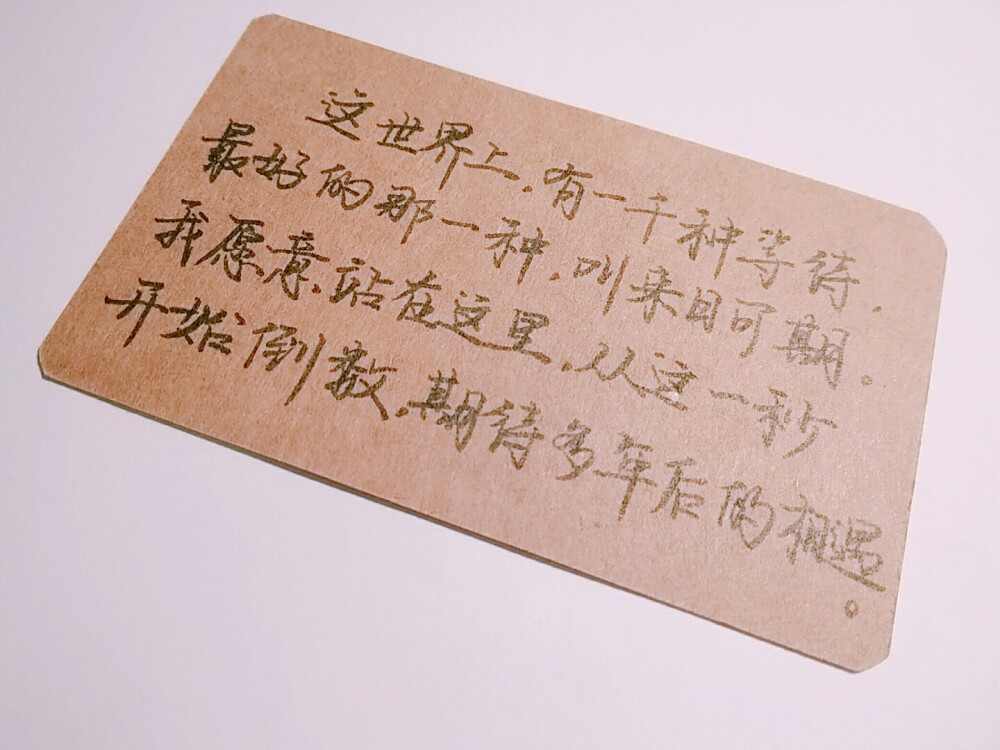 这世界上,有一千种等待,
最好的那一种,叫来日可期。
我愿意、站在这里,从这一秒
开始倒数,期待多年后的相遇。